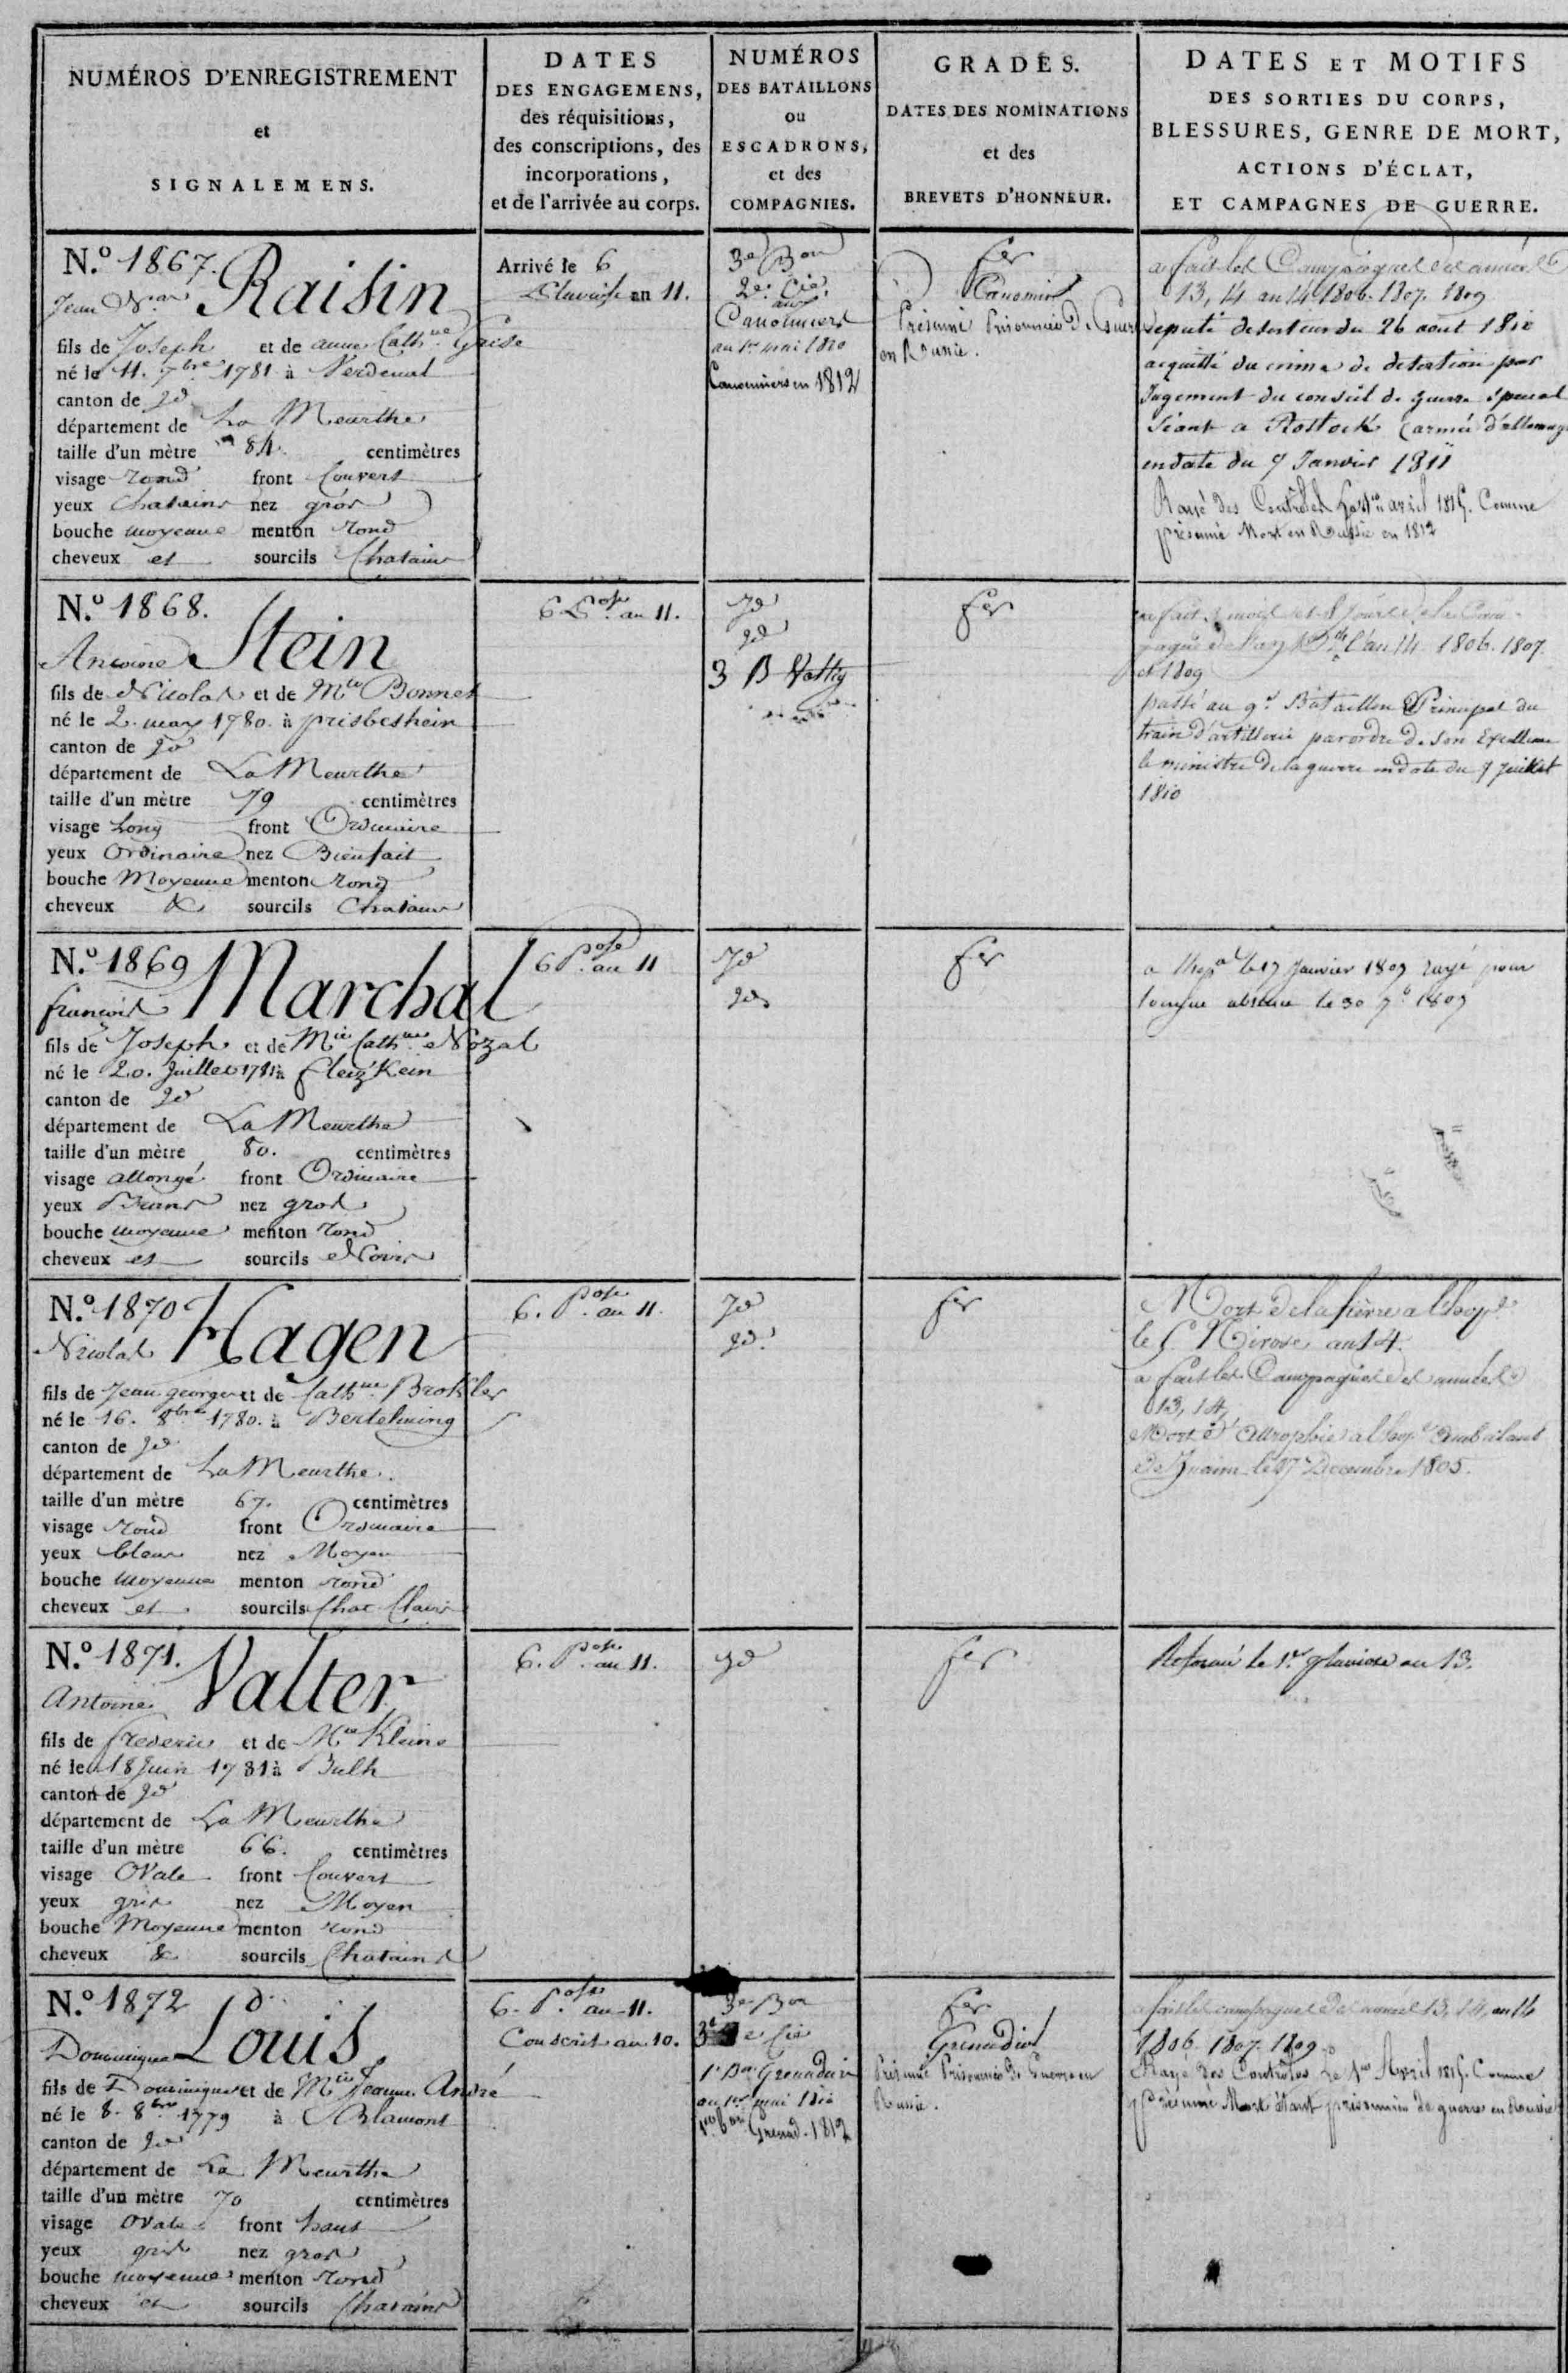 NUMÉROS D'ENREGISTREMENT
et
SIGNALEMENS.
DATES
DES ENGAGEMENS,
des réquisitions,
des conscriptions, des
incorporations,
et de l'arrivée au corps.
NUMÉROS
DES BATAILLONS
ou
ESCADRONS,
et des
COMPAGNIES.
GRADES.
DATES DES NOMINATIONS
et des
BREVETS D'HONNEUR.
DATES ET MOTIFS
DES SORTIES DU CORPS,
BLESSURES, GENRE DE MORT,
ACTIONS D'ÉCLAT,
ET CAMPAGNES DE GUERRE.
N.º 1867. Raisin
Jean
fils de Joseph et de anne Cath.ne Grise
né le 11. 7bre 1781 à Verdenal
canton de Jd
département de La Meurthe
taille d'un mètre 84. centimètres
visage rond front Couvert
yeux Chatains nez gros
bouche moyenne menton rond
cheveux et sourcils Chatains
Arrivé le 6
Pluviose an 11.
3e Bon
2e Cie
aux
Canonniers
au 1er mai 1810
Canonniers en 1812
fer
Canonnier
Présumé Prisonnier De Guerre
en Russie.
a fait les Campagnes des années
13, 14 an 14 1806. 1807. 1809
deputé deserteur du 26 aout 1810
acquitté du crime de desertion par
Jugement du conseil de guerre spécial
Séant a Rostock (armée d'allemag
en date du 7 Janvier 1811
Rayé des Contrôles Le 1er avril 1815. Comme
présumé Mort en Russie en 1812
N.º 1868. Stein
Antoine
fils de Nicolas et de Mie Bonnet
né le 2. may 1780. à prisbeshein
canton de Jd
département de La Meurthe
taille d'un mètre 79 centimètres
visage Long front Ordinaire
yeux Ordinaire nez Bienfait
bouche Moyenne menton rond
cheveux & sourcils Chatains
6 Pose an 11.
Jd
Jd
3 B
fer
a fait mois et 8 jours de la Cam-
pagne de l'an l'an 14 1806. 1807.
et 1809
passé au 9e Bataillon Principal du
train d'artillerie par ordre de son Excellence
le ministre de la guerre en date du 7 Juillet
1810
N.º 1869 Marchal
françois
fils de Joseph et de Mie Cath.ne Nozal
né le 20. Juillet 1781 à fleiz'Kein
canton de Jd
département de La Meurthe
taille d'un mètre 80. centimètres
visage allongé front Ordinaire
yeux Bruns nez gros
bouche moyenne menton rond
cheveux et sourcils Noirs
6 Pose an 11
Jd
Jd
fer
a l'hopal le 17 Janvier 1807 rayé pour
longue absence le 30 1807
N.º 1870 Hagen
Nicolas
fils de Jean george et de Cath.ne
né le 16. 8bre 1780. à Bertelming
canton de Jd
département de La Meurthe.
taille d'un mètre 67. centimètres
visage rond front Ordinaire
yeux bleus nez Moyen
bouche moyenne menton rond
cheveux et sourcils Chat Clairs
6. Pose an 11.
Jd
Jd.
fer
Mort de la fièvre a l'hopal
le Nivose an 14.
a fait les Campagnes des années
13, 14,
Mort d'attrophie a l'hopal ambulant
de Znaim le 27 Decembre 1805.
N.º 1871. Valter
Antoine
fils de frederic et de Mie Kleine
né le 18 Juin 1781 à Bulh
canton de Jd
département de La Meurthe
taille d'un mètre 66. centimètres
visage Ovale front Couvert
yeux gris nez Moyen
bouche Moyenne menton rond
cheveux & sourcils Chatains
6. Pose an 11.
Jd
fer
Reformé le 1er pluviose an 13.
N.º 1872 Louis
Dominique
fils de Dominique et de Mie Jeanne André
né le 8. 8bre 1779 à Blamont
canton de Jd
département de La Meurthe
taille d'un mètre 70 centimètres
visage Ovale front haut
yeux gris nez gros
bouche moyenne menton rond
cheveux et sourcils Chatains
6. Pose an 11.
Conscrit an 10.
3e Bon
3e Cie
1er Bon Grenadier
au 1er mai 1810
1er bon Grenad. 1812
fer
Grenadier
Présumé Prisonnier De Guerre en
Russie.
a fait les campagnes des années 13, 14, an 14
1806. 1807. 1809
Rayé des Contrôles Le 1er Avril 1815. Comme
présumé Mort étant prisonnier de guerre en Russie